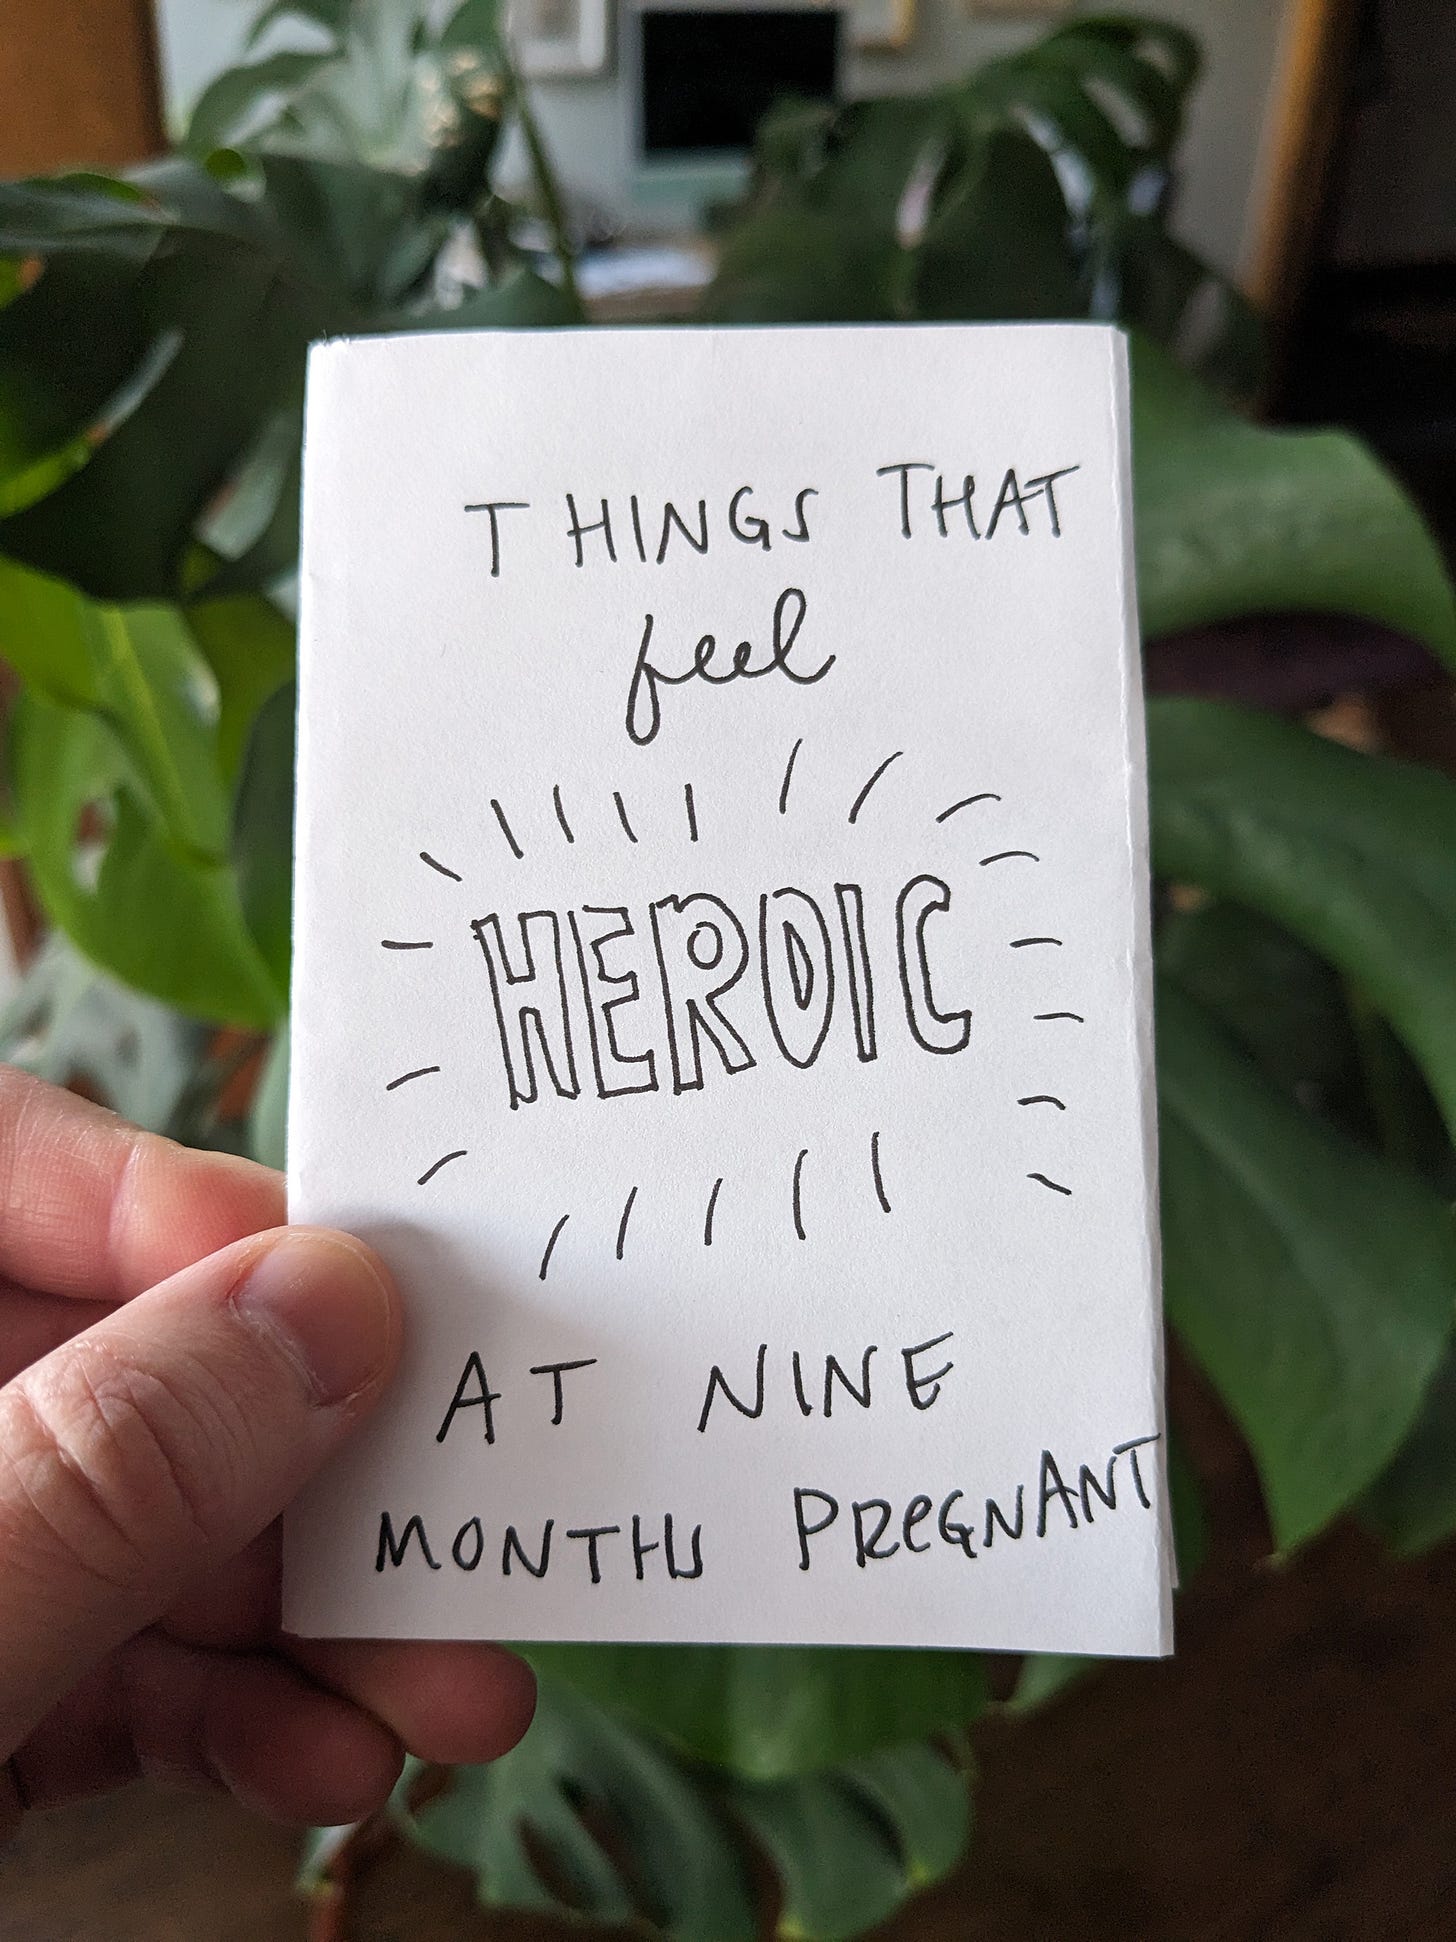 THINGS THAT
feel
HEROIC
AT NINE
MONTHS PREGNANT